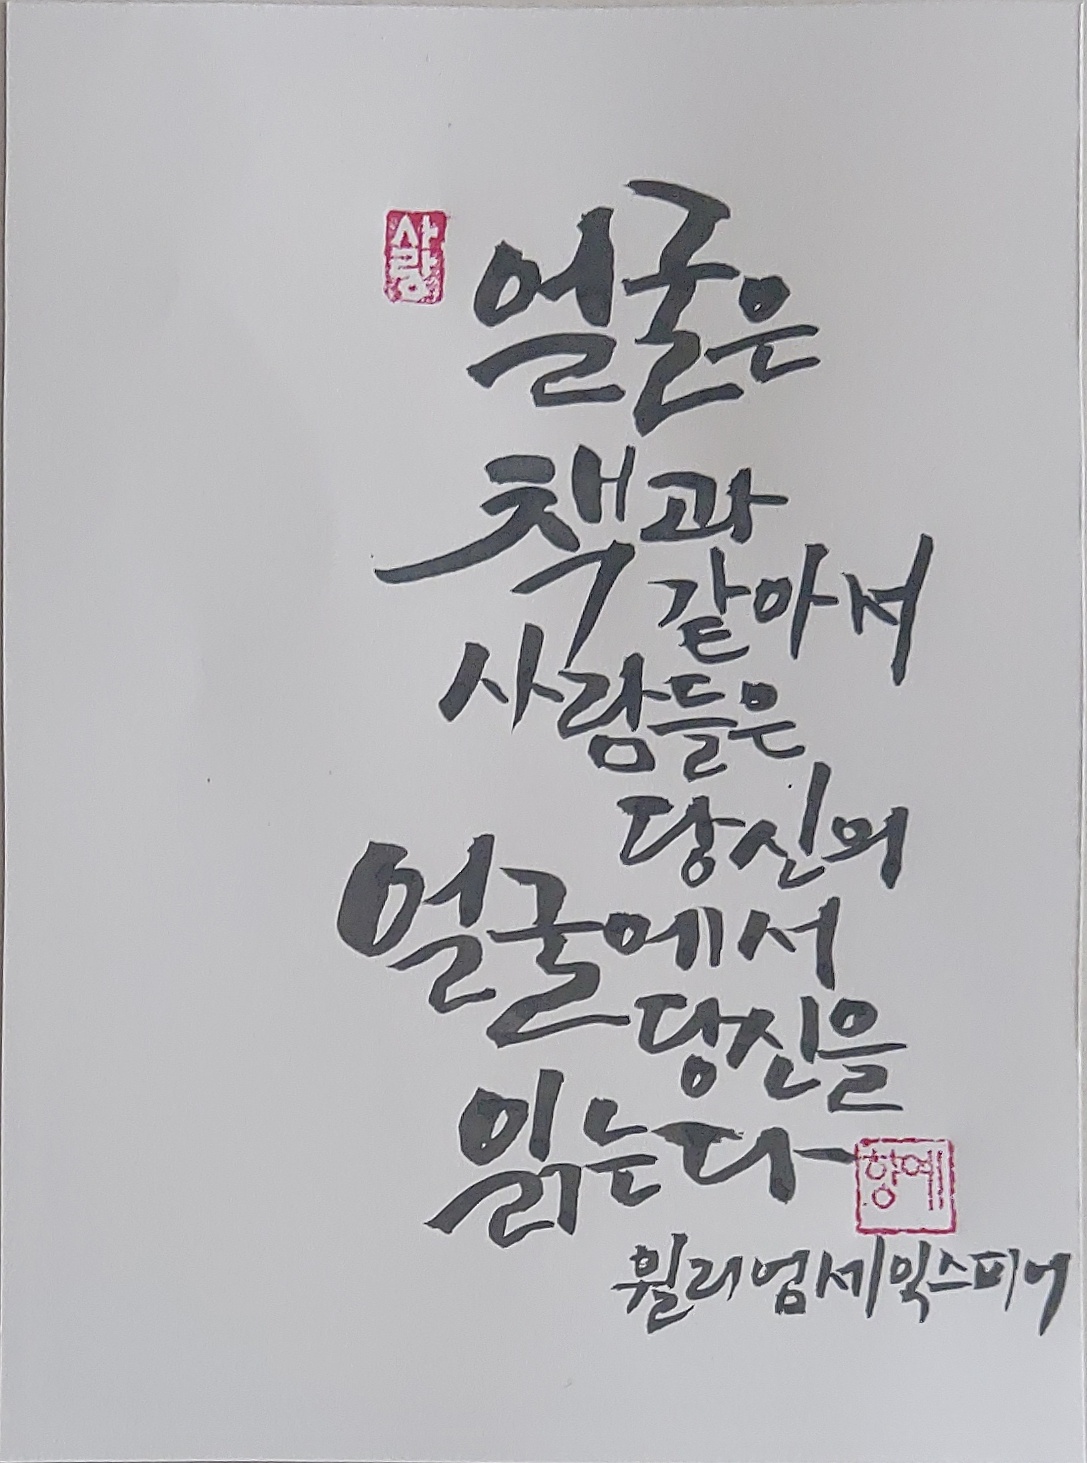 사랑
얼굴은
책과
같아서
사람들은
당신의
얼굴에서
당신을
읽는다
향예
윌리엄세익스피어